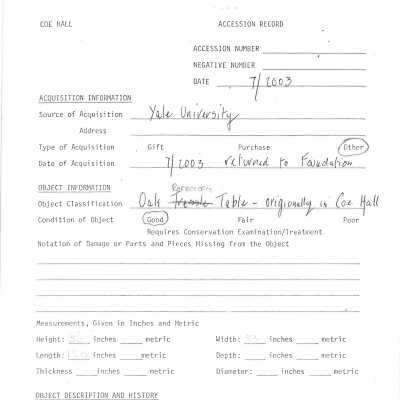 COE HALL ACCESSION RECORD
ACCESSION NUMBER
NEGATIVE NUMBER
DATE 7/2003
ACQUISITION INFORMATION
Source of Acquisition Yale University
Address
Type of Acquisition Gift Purchase Other
Date of Acquisition 7/2003 returned to Foundation
OBJECT INFORMATION
Refectory
Object Classification Oak Trestle Table - originally in Coe Hall
Condition of Object Good Fair Poor
Requires Conservation Examination/Treatment
Notation of Damage or Parts and Pieces Missing from the Object
Measurements, Given in Inches and Metric
Height: inches metric Width: inches metric
Length: inches metric Depth: inches metric
Thickness inches metric Diameter: inches metric
OBJECT DESCRIPTION AND HISTORY